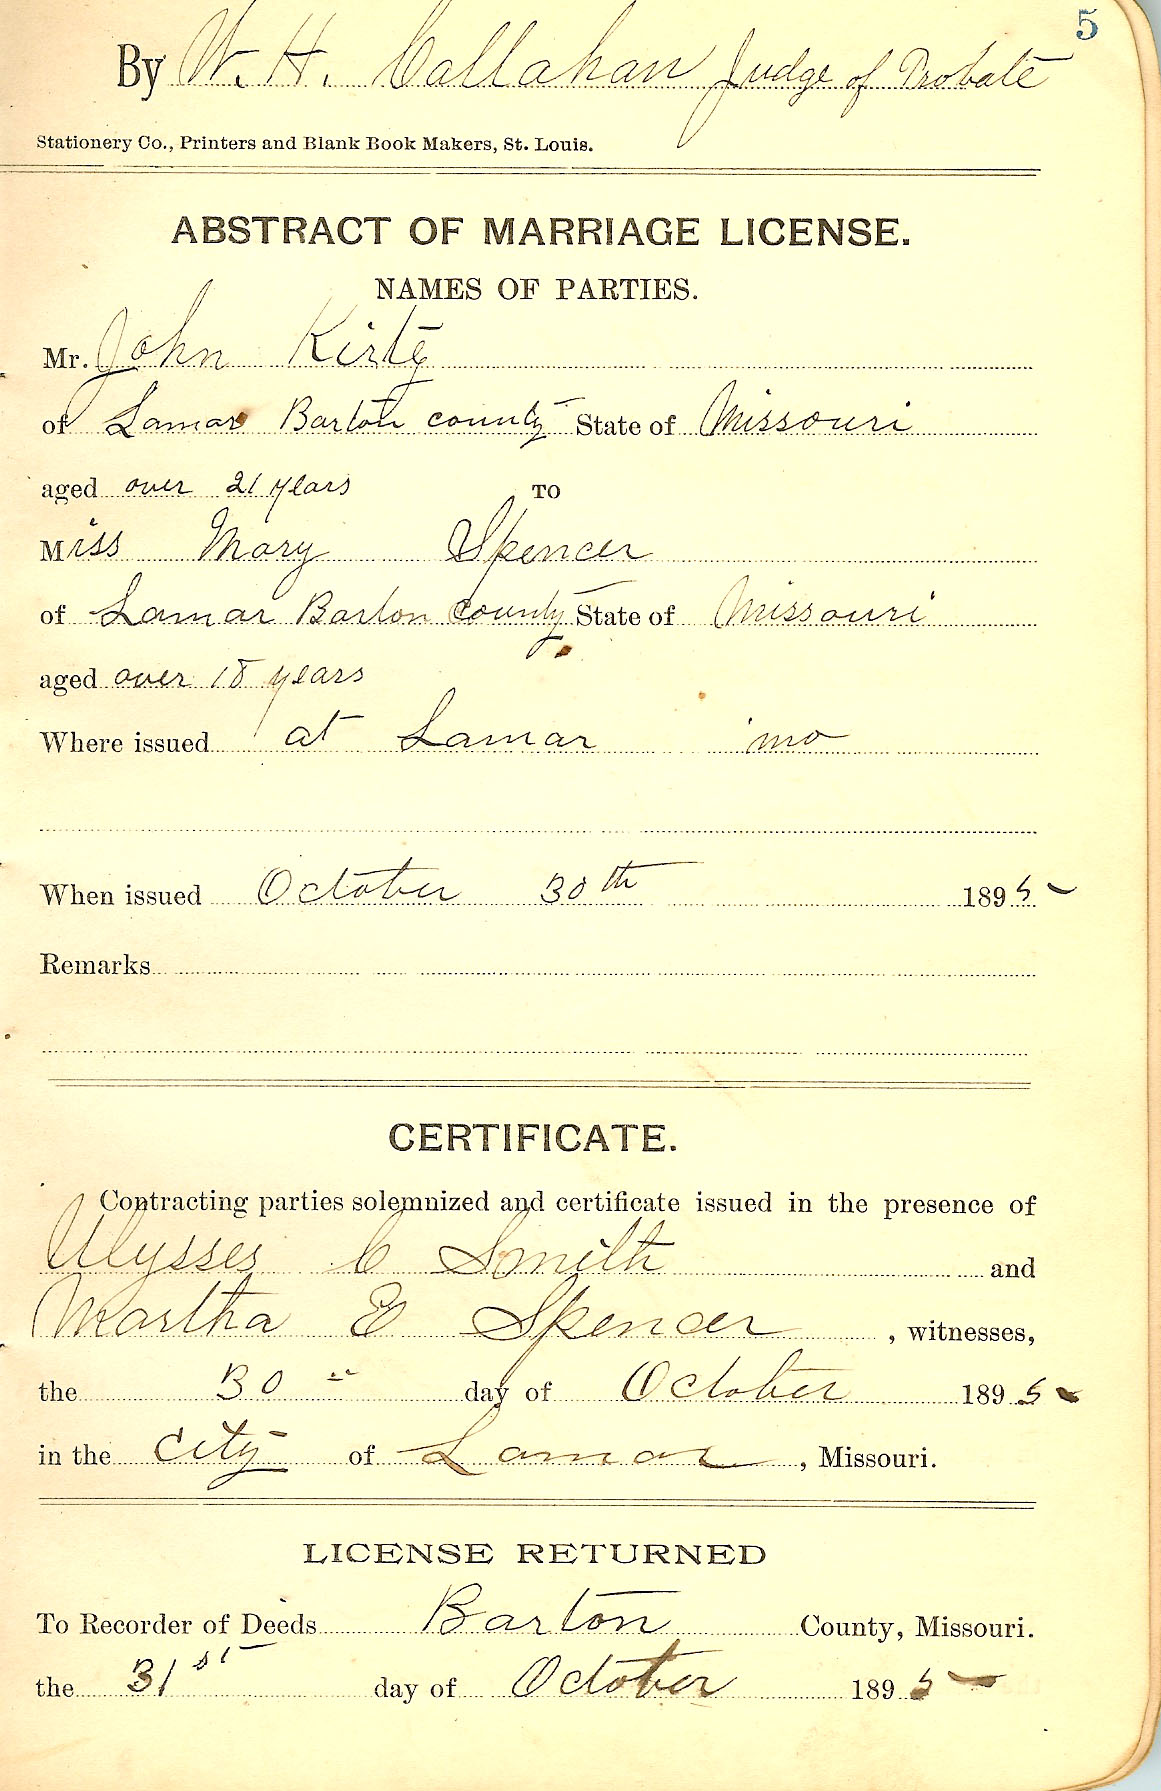 5
By W. H. Callahan Judge of Probate
Stationery Co., Printers and Blank Book Makers, St. Louis.
ABSTRACT OF MARRIAGE LICENSE.
NAMES OF PARTIES.
Mr. John
of Lamar Barton county State of Missouri
aged over 21 years TO
Miss Mary Spencer
of Lamar Barton County State of Missouri
aged over 18 years
Where issued at Lamar mo
When issued October 30th 1895
Remarks
CERTIFICATE.
Contracting parties solemnized and certificate issued in the presence of
Ulysses C Smith and
Martha E Spencer, witnesses,
the 30 day of October 1895
in the City of Lamar, Missouri.
LICENSE RETURNED
To Recorder of Deeds Barton County, Missouri.
the 31st day of October 1895